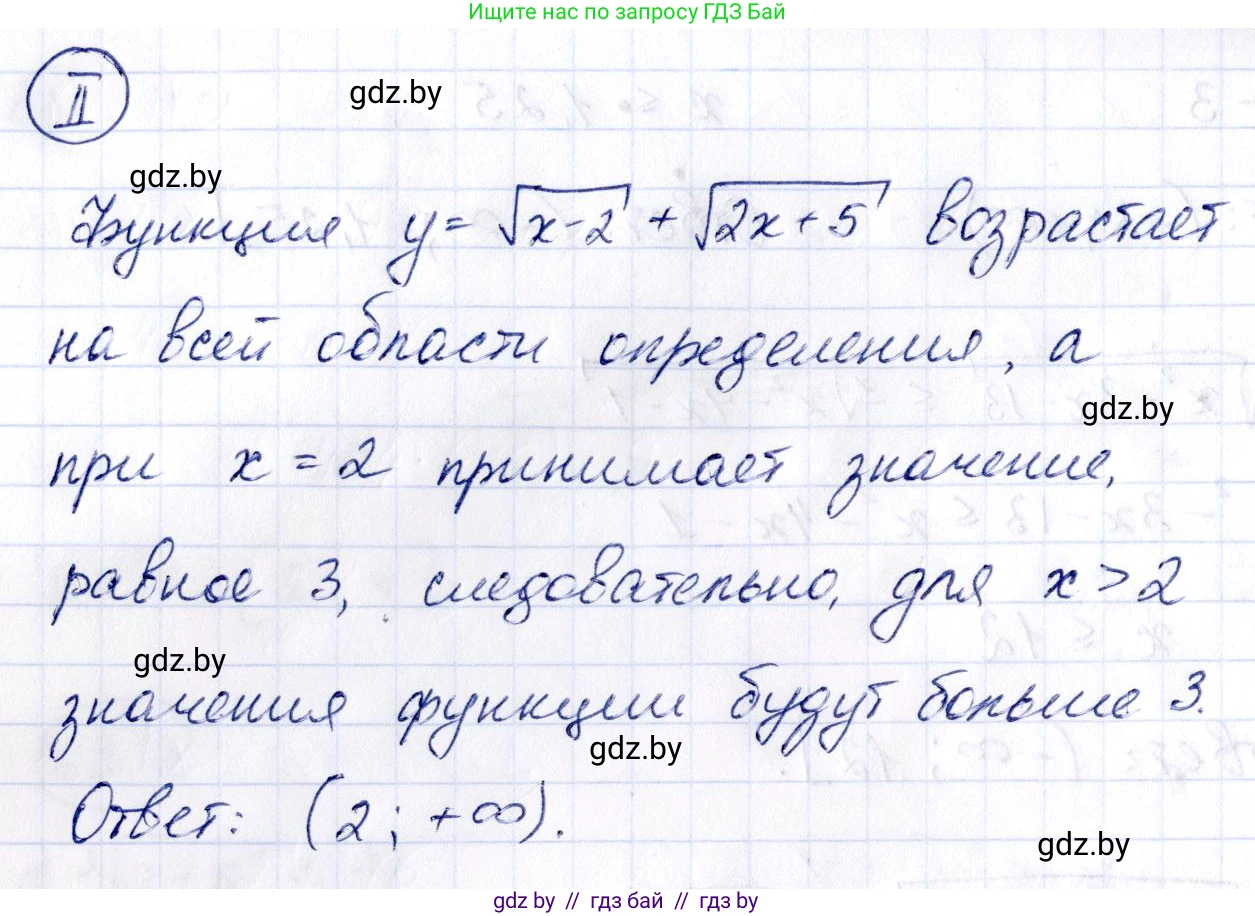 Ищите нас по запросу ГДЗ Бай
II
gdz.by
gdz.by
Функция y = √(x-2) + √(2x+5) возрастает
на всей области определения, а
gdz.by
при x = 2 принимает значение,
равное 3, следовательно, для x > 2
gdz.by
значения функции будут больше 3.
gdz.by
Ответ: (2; +∞).
gdz.by
gdz.by // гдз бай // гдз by